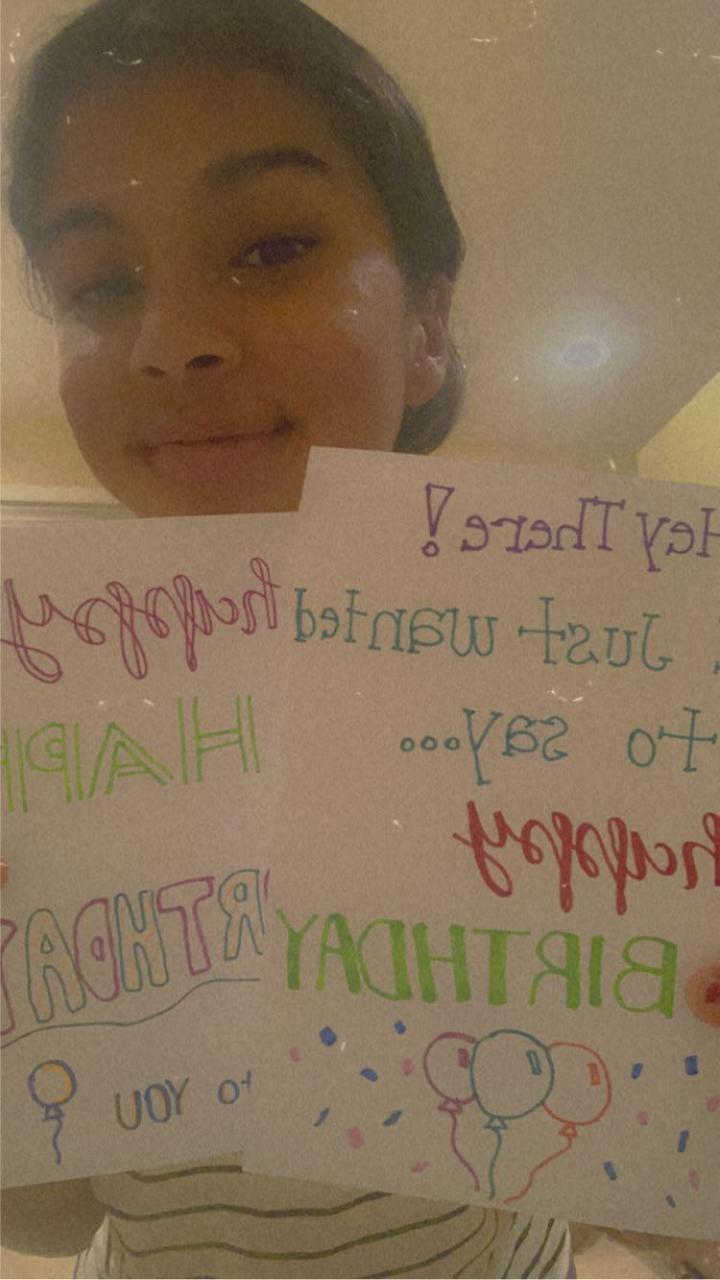 Hey There!
Just wanted
to say...
happy
BIRTHDAY
happy
HAPP
RTHDAY
to YOU